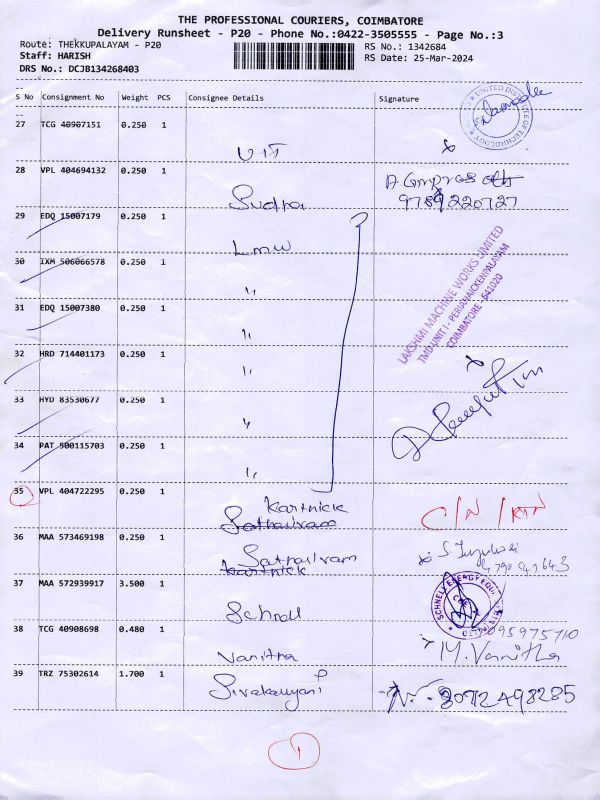 THE PROFESSIONAL COURIERS, COIMBATORE
Delivery Runsheet - P20 - Phone No.:0422-3505555 - Page No.:3
Route: THEKKUPALAYAM - P20
RS No.: 1342684
Staff: HARISH
RS Date: 25-Mar-2024
DRS No.: DCJB134268403
S No Consignment No Weight PCS Consignee Details Signature
UNITED INSTITUTE OF TECHNOLOGY
27 TCG 40907151 0.250 1
UIT
28 VPL 404694132 0.250 1
Sudha
9789220727
29 EDQ 15007179 0.250 1
Lmw
30 IXM 506066578 0.250 1
"
31 EDQ 15007380 0.250 1
"
32 HRD 714401173 0.250 1
"
33 HYD 83530677 0.250 1
"
34 PAT 500115703 0.250 1
"
LAKSHMI MACHINE WORKS LIMITED
TMD UNIT I - PERIANAICKENPALAYAM
COIMBATORE - 641020
35 VPL 404722295 0.250 1
Karthick
Sathasivam
C/N / RTN
36 MAA 573469198 0.250 1
Sathasivam
Karthick
37 MAA 572939917 3.500 1
Schnell
SCHNELL ENERGY EQUI
38 TCG 40908698 0.480 1
Vanitha
M. Vanitha
39 TRZ 75302614 1.700 1
Sivakalyani
1